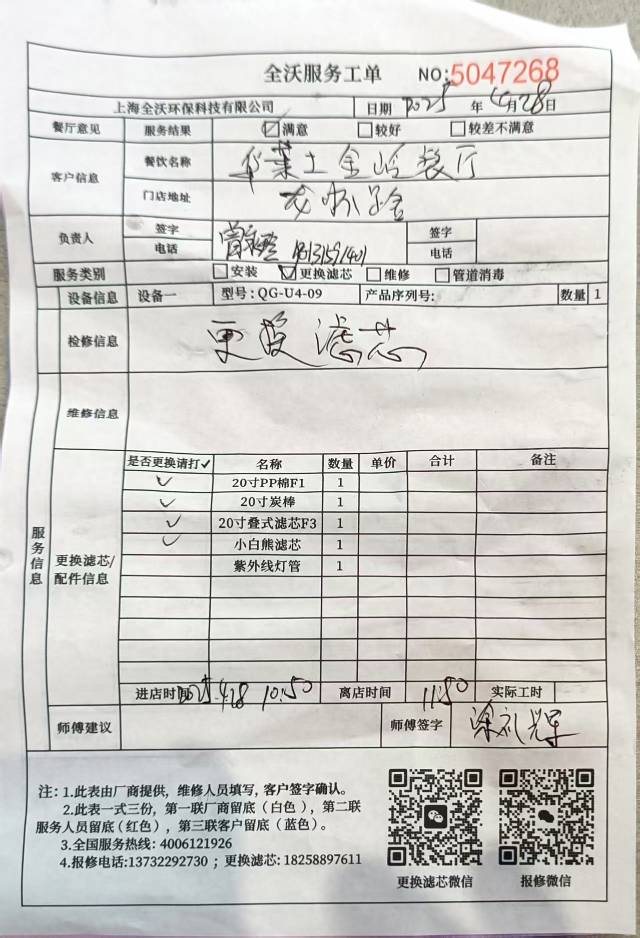 全沃服务工单 NO:5047268
上海全沃环保科技有限公司 日期 2025 年 4月28日
餐厅意见 服务结果 ☑满意 □较好 □较差不满意
客户信息 餐饮名称 餐厅
门店地址
负责人 签字 签字
电话 18131591401 电话
服务类别 □安装 ☑更换滤芯 □维修 □管道消毒
设备信息 设备一 型号: QG-U4-09 产品序列号: 数量 1
检修信息 更换滤芯
维修信息
服务信息
更换滤芯/配件信息
是否更换请打✓ 名称 数量 单价 合计 备注
✓ 20寸PP棉F1 1
✓ 20寸炭棒 1
✓ 20寸叠式滤芯F3 1
✓ 小白熊滤芯 1
紫外线灯管 1
进店时间 2025.4.28 10:50 离店时间 11:50 实际工时
师傅建议 师傅签字 涂礼辉
注: 1.此表由厂商提供，维修人员填写, 客户签字确认。
2.此表一式三份，第一联厂商留底（白色），第二联
服务人员留底（红色），第三联客户留底（蓝色）。
3.全国服务热线: 4006121926
4.报修电话:13732292730 ；更换滤芯: 18258897611
更换滤芯微信 报修微信